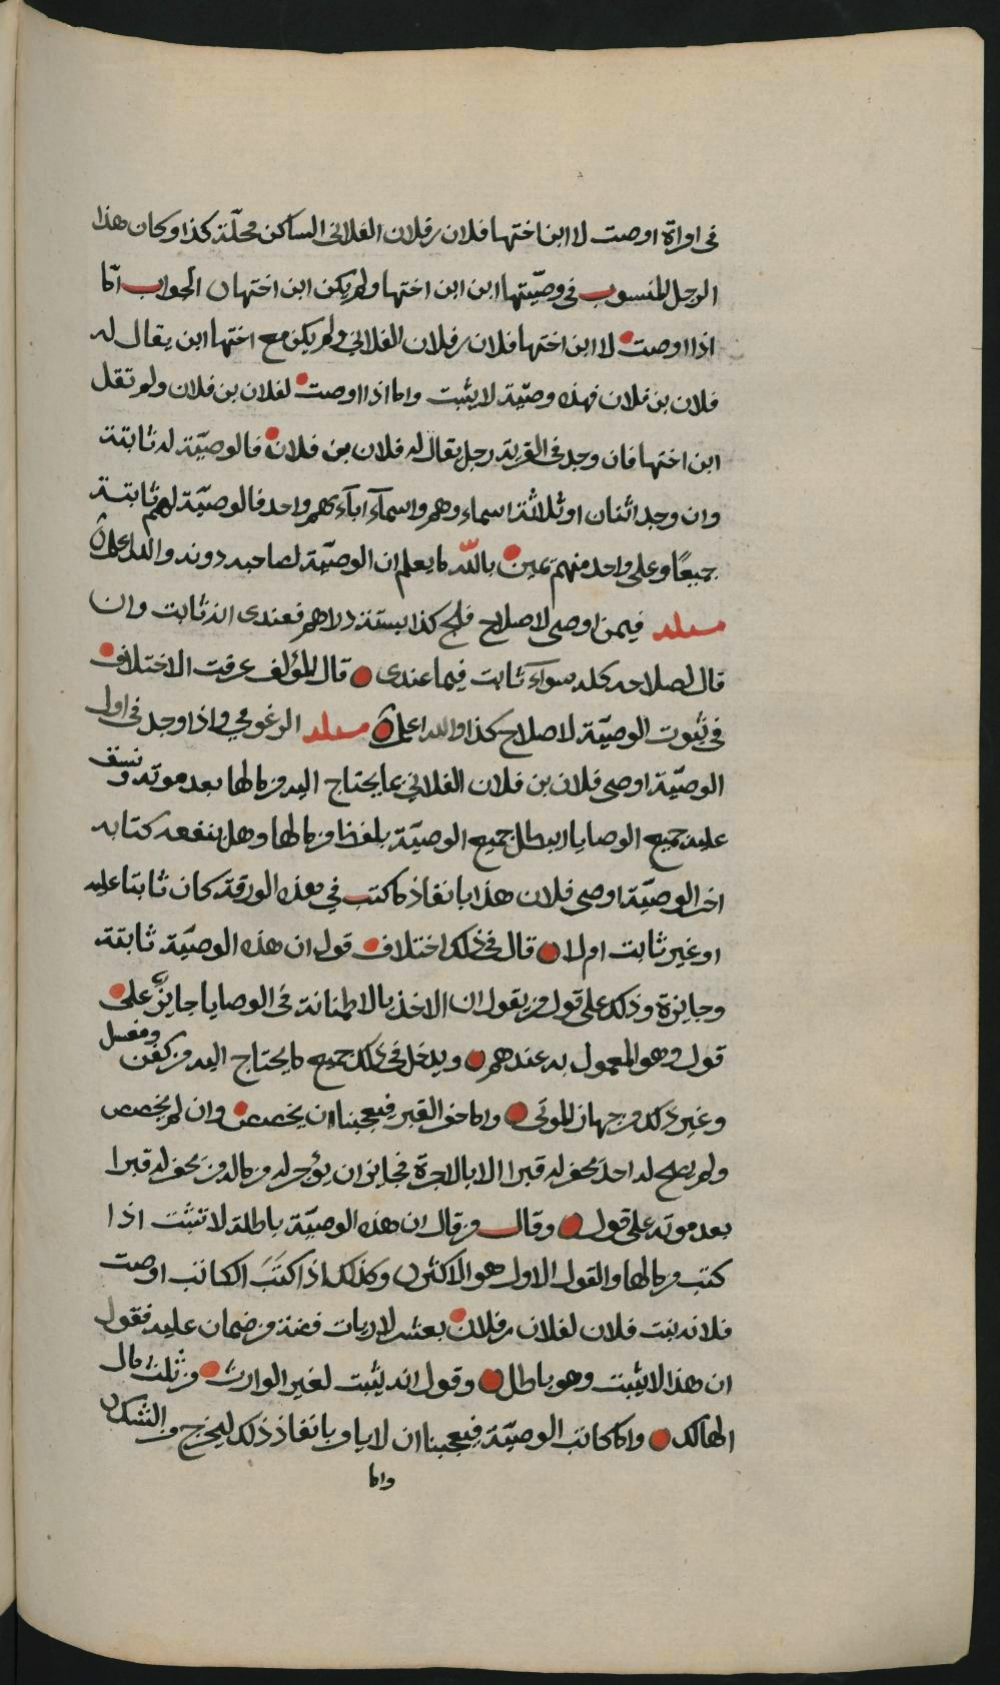 في امراة اوصت لا ابن اختها فلان بن فلان الفلاني الساكن محلّة كذا وكان هذا
الرجل المنسوب في وصيّتها ابن ابن اختها ولم يكن ابن اختها ن الجواب امّا
اذا اوصت لا ابن اختها فلان بن فلان الفلاني ولم يكن مع اختها ابن يقال له
فلان بن فلان فهذه وصيّة لا يثبت واما اذا اوصت لفلان بن فلان ولم تقل
ابن اختها فان وجد في القرية رجل يقال له فلان بن فلان فالوصيّة له ثابتة
وان وجد اثنان او ثلاثة اسماءوهم واسمآء ابآءهم واحد فالوصيّة لهم ثابتة
جميعًا وعلى واحد منهم يمين بالله ما يعلم ان الوصيّة لصاحبه دونه والله اعلم
مسلة فيمن اوصى لاصلاح فلج كذا بستة دراهم فعندى انه ثابت وان
قال لصلاحه كله سوآء ثابت فيما عندى قال المؤلف عرفت الاختلاف
في ثبوت الوصيّة لاصلاح كذا والله اعلم مسلة الرغومي واذا وجد في اول
الوصيّة اوصى فلان بن فلان الفلاني بما يحتاج اليه من مالها بعد موته ونسق
عليه جميع الوصايا ايبطل جميع الوصيّة بلفظ من مالها وهل ينفعه كتابه
اخر الوصيّة اوصى فلان هذا بانفاذ ما كتب في هذه الورقة كان ثابتا عليه
او غير ثابت ام لا قال في ذلك اختلاف قول ان هذه الوصيّة ثابتة
وجايزة وذلك على قول من يقول ان الاخذ بالاطمانة في الوصايا جايز على
قول وهو المعمول به عندهم ويدخل في ذلك جميع ما يحتاج اليه من كفن ومغسل
وغير ذلك من جهاز الموتى واما حفر القبر فيعجبنا ان يخصص وان لم يخصص
ولم يصح له احد يحفر له قبرا الا بالاجرة فجايز ان يؤجر له من ماله من يحفر له قبرا
بعد موته على قول وقال من قال ان هذه الوصيّة باطلة لا تثبت اذا
كتب من مالها والقول الاول هو الاكثر ن وكذلك اذا كتَبَ الكاتب اوصت
فلانه بنت فلان لفلان بن فلان بعشر لاريات فضة من ضمان عليه فقول
ان هذا لا يثبت وهو باطل وقول انه يثبت لغير الوارث من ثلث مال
الهالك واما كاتب الوصيّة فيعجبنا ان لا يامر بانفاذ ذلك ليخرج من الشك ن
واما